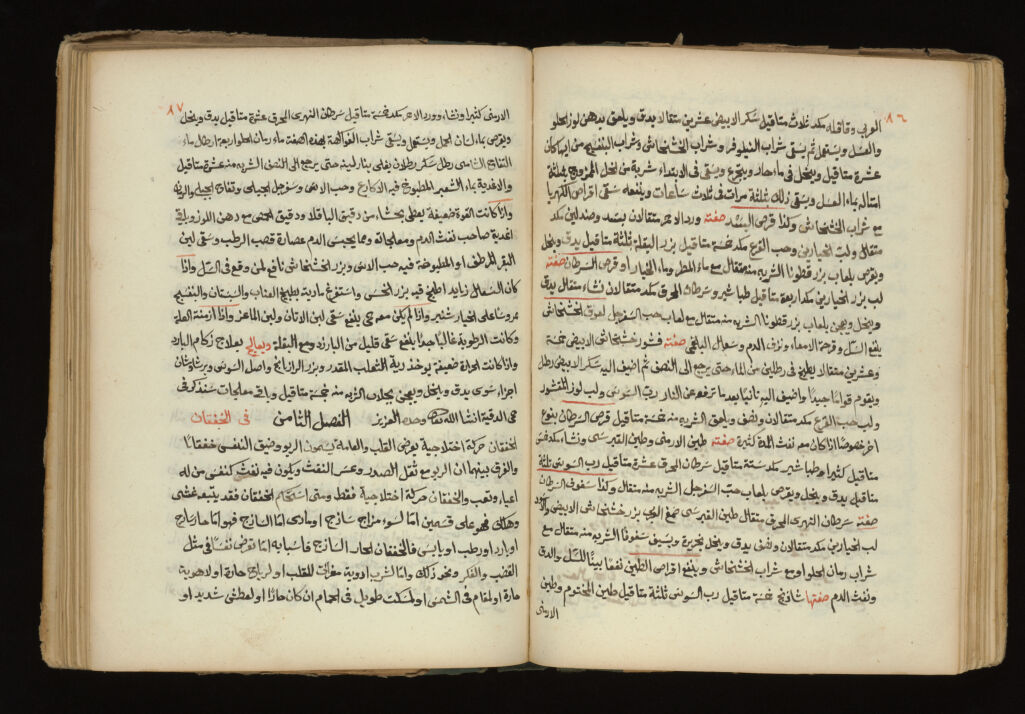 ٨٦
العربى وقاقله مكد ثلاث مثاقيل سكر الابيض عشرين مثقالا يدق ويلعق بدهن لوز الحلو
والعسل ويستعمل ثم يسقى شراب النيلوفر وشراب الخشخاش وشراب البنفسج من ايها كان
عشرة مثاقيل وينخل فى ماء حار ويتجرع ويسقى فى الابتداء شربة من الخل الممزوج بمثلثة
امثاله بماء العسل ويسقى ذلك بثلثة مرات فى ثلاث ساعات وينفعه سقى اقراص الكهربا
مع شراب الخشخاش وكذا قرص البسد صفته ورد الاحمر مثقالان بسد وصندلين مكد
مثقال ولب الخيارين وحب القرع مكد خمسة مثاقيل بزر البقلة ثلثة مثاقيل يدق وينخل
ويقرص بلعاب بزر قطونا الشربه منه مثقال مع ماء المطر وماء الخيار او قرص السرطان صفته
لب بزر الخيارين مكد اربعة مثاقيل طباشير وسرطان المحرق مكد مثقالان نشاء مثقال يدق
وينخل ويعجن بلعاب بزر قطونا الشربه منه مثقال مع لعاب حب السفرجل لعوق الخشخاش
ينفع السل وقرحة الامعاء ونزف الدم وسعال البلغمى صفته قشور خشخاش الابيض خمسة
وعشرين مثقالا يطبخ فى رطلين من الماء حتى يرجع الى النصف ثم اضيف اليه سكر الابيض رطل
ويقوم قواما جيدا واضيف اليه ثانيا بعد ما ترفع عن النار رب السوس ولب لوز المقشور
ولب حب القرع مكد مثقالان ونصف ويلعق الشربه منه خمسة مثاقيل قرص السرطان بنوع
اخر خصوصا اذا كان مع نفث المدة كثيرة صفته طين الارمنى وطين القبرسى ونشاء مكد خمس
مثاقيل كثيرا وطباشير مكد ستة مثاقيل سرطان المحرق عشرة مثاقيل رب السوس ثلثة
مثاقيل يدق وينخل ويقرص بلعاب حب السفرجل الشربه منه مثقال وكذا سفوف السرطان
صفته سرطان النهرى المحرق مثقال طين القبرسى صمغ العربى بزر خشخاش الابيض
لب الخيارين مكد مثقالان ونصف يدق وينخل بحريرة ويسف سفوفا الشربه منه مثقال مع
شراب رمان الحلو او مع شراب الخشخاش وينفع اقراص الطين نفعا بينا للسل والدق
ونفث الدم صفتها شاذنج خمسة مثاقيل رب السوس ثلثة مثاقيل طين المختوم وطين
الارمنى
٨٧
الارمنى كثيرا ونشاء وورد الاحمر مكد خمسة مثاقيل سرطان النهرى المحرق عشرة مثاقيل يدق وينخل
ويقرص بماء لسان الحمل ويستعمل ويسقى شراب الفواكهة بهذه الصفة ماء رمان الحلو اربعة ارطال ماء
التفاح الشامى رطل سكر رطلان يغلى بنار لينة حتى يرجع الى النصف الشربه منه عشرة مثاقيل
والاغذية بماء الشعير المطبوخ فيه الاكارع وحب الاس وسفرجل الجبلى وتفاح الجبلى
واذا كانت القوة ضعيفة يعطى بحشاء من دقيق الباقلا ودقيق الحمص مع دهن اللوز وباقى
اغدية صاحب نفث الدم ومعالجاته ومما يحبس الدم عصارة قصب الرطب وسقى لبن
البقر المرطفى او المطبوخة فيه حب الاس وبزر الخشخاش نافع لمن وقع فى السل واذا
كان السعال زايد اطبخ فيه بزر الخس واستفرغ مادته بطبيخ العناب والسبستان والبنفسج
ممروسا على الخيار شنبر واذا لم يكن معه حمى ينفع سقى لبن الاتان ولبن الماعز واذا ازمنة العلة
وكانت الرطوبة غالبا جدا ينفع سقى قليل من البارزد ومع البقلة ويعالج بعلاج زكام البارد
واذا كانت الحرارة ضعيفة يوخذ رية الثعلب المقدد وبزر الرازيانج واصل السوس وبرشاوشان
اجزاء سوى يدق وينخل ويعجن بجلاب الشربه منه خمسة مثاقيل وباقى معالجات سنذكر فى
حمى الدقية انشا الله تعالى وحده العزيز الفصل الثامن فى الخفقان
الخفقان حركة اختلاجية يعرض القلب والعامه يسمون الربو وضيق النفس خفقانا
والفرق بينهما ان الربو مع ثقل الصدر وعسر النفث ويكون فيه نفث كنفس من له
اعياء وتعب والخفقان حركة اختلاجية فقط ومتى استحكم الخفقان فقد يتبعه غشى
وهلاك فهو على قسمين اما لسوء مزاج سازج او مادى اما السازج فهو اما حار سازج
او بارد او رطب او يابس فالخفقان الحار السازج فاسبابه اما تعرض نفسانى مثل
الغضب والفكر ونحو ذلك واما لشرب ادوية للقلب او لرياح حارة او لاهوية
حارة او لمقام فى الشمس او لمكث طويل فى الحمام ان كان حارا او لعطش شديد او